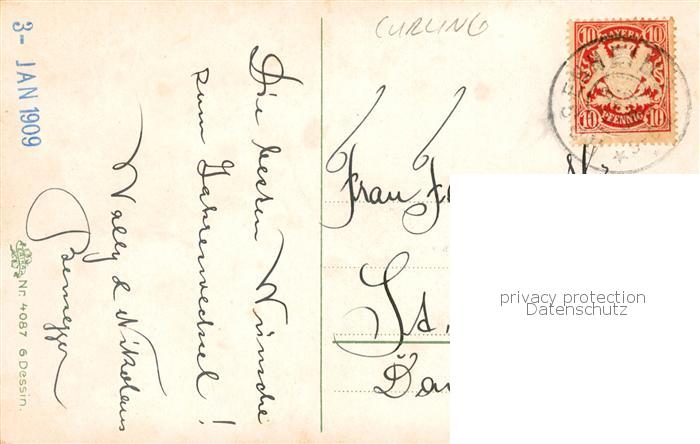 3- JAN 1909
CURLING
Die besten Wünsche
zum Jahreswechsel!
Wally & Nikolaus
Nr. 4087 6 Dessin.
Frau
St.
10 BAYERN 10
10 PFENNIG 10
privacy protection
Datenschutz